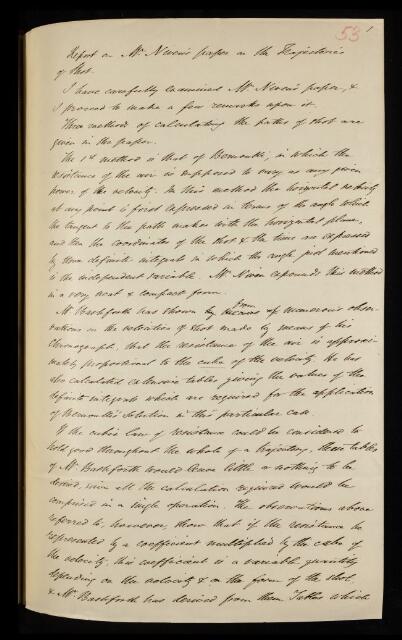 53 1
Report on Mr Niven's paper on the Trajectories
of Shot.
I have carefully examined Mr Niven's paper, &
I proceed to make a few remarks upon it.
Three methods of calculating the paths of shot are
given in the paper.
The 1st method is that of Bernoulli, in which the
resistance of the air is supposed to vary as any given
power of the velocity. In this method the horizontal velocity
at any point is first expressed in terms of the angle which
the tangent to the path makes with the horizontal plane,
and then the coordinates of the shot & the time are expressed
by three definite integrals in which the angle just mentioned
is the independent variable. Mr Niven expounds this method
in a very neat & compact form.
Mr Bashforth has shown by means from of numerous obser-
vations on the retardation of shot made by means of his
Chronograph, that the resistance of the air is approxi-
mately proportional to the cube of the velocity. He has
also calculated extensive tables, giving the values of the
definite integrals which are required for the application
of Bernoulli's solution in this particular case.
If the cubic law of resistance could be considered to
hold good throughout the whole of a trajectory, these tables
of Mr Bashforth would leave little or nothing to be
desired, since all the calculation required would be
comprised in a single operation. The observations above
referred to, however, show that if the resistance be
represented by a coefficient multiplied by the cube of
the velocity, this coefficient is a variable quantity
depending on the velocity & on the form of the shot,
& Mr Bashforth has derived from them Tables which